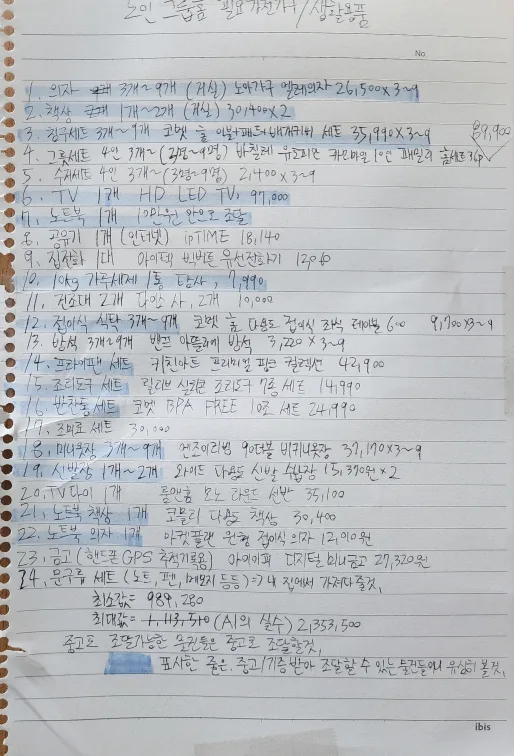 노인 그룹홈 필요가전가구/생활용품
No.
1. 의자 3개~9개 (거실) 노아가구 엘레의자 26,500×3~9
2. 책상 1개~2개 (거실) 30,400×2
3. 침구세트 3개~9개 코멧 홈 이불패드베개커버 세트 35,990×3~9
89,900
4. 그릇세트 4인 3개~(3명~9명) 바칠레 유로피안 카모마일 10인 패밀리 홈세트 36p
5. 수저세트 4인 3개~(3명~9명) 2,400×3~9
6. TV 1개 HD LED TV, 97,000
7. 노트북 1개 10만원 안으로 조달
8. 공유기 1개 (인터넷) ipTIME 18,140
9. 집전화 1대 아이텍 빅버튼 유선전화기 12,080
10. 10kg 가루세제 1통 탐사, 7,990
11. 건조대 2개 다있소 사, 2개 10,000
12. 접이식 식탁 3개~9개 코멧 홈 다용도 접이식 좌식 테이블 600 9,700×3~9
13. 방석 3개~9개 반프 아뜰리에 방석 3,220×3~9
14. 프라이팬 세트 키친아트 프리미엄 핑크 컬렉션 42,900
15. 조리도구 세트 릴리브 실리콘 조리도구 7종 세트 14,990
16. 반찬통 세트 코멧 BPA FREE 10조 세트 24,990
17. 조미료 세트 30,000
18. 미니옷장 3개~9개 엔조이리빙 90더블 비키니옷장 37,170×3~9
19. 신발장 1개~2개 와이드 다용도 신발 수납장 15,370원×2
20. TV다이 1개 홈앤홈 모노 라운드 선반 35,100
21. 노트북 책상 1개 코믈리 다용도 책상 30,400
22. 노트북 의자 1개 마켓플랜 원형 접이식 의자 12,010원
23. 금고 (핸드폰 GPS 추적기록용) 아이아이피 디지털 미니금고 27,320원
24. 문구류 세트 (노트, 펜, 메모지 등등) => 내 집에서 가져다줄것,
최소값= 989,280
최대값= 1,113,510 (AI의 실수) 2,353,500
중고로 조달가능한 물건들은 중고로 조달할것,
표시한 줄은, 중고/기증받아 조달할 수 있는 물건들이니 유심히 볼것,
ibis